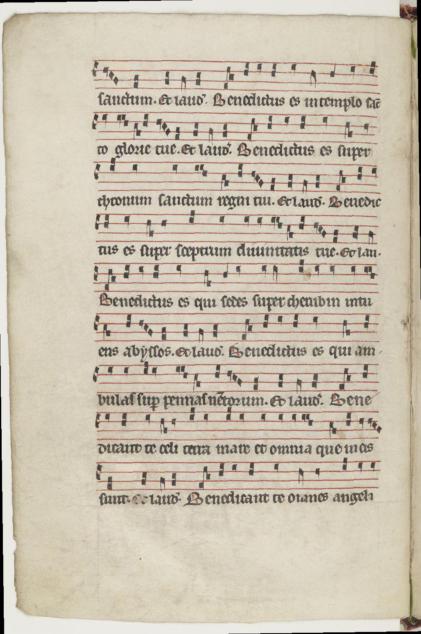 sanctum. Et laud. Benedictus es in templo sac
to glorie tue. Et laud. Benedictus es super
thronum sanctum regni tui. Et laud. Benedic
tus es super sceptrum diuinitatis tue. Et lau.
Benedictus es qui sedes super cherubin intu
ens abyssos. Et laud. Benedictus es qui am
bulas sup pennas uentorum. Et laud. Bene
dicant te celi terra mare et omnia que in eis
sunt. Et laud. Benedicant te omnes angeli